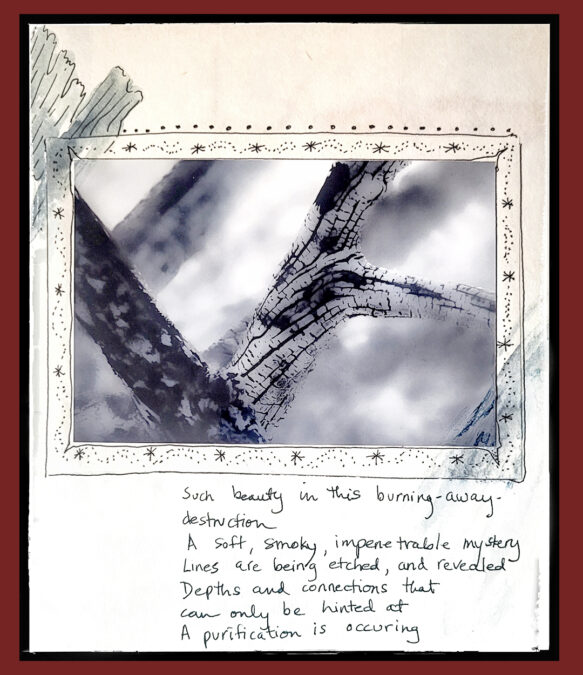 Such beauty in this burning-away-
destruction
A soft, smoky, impenetrable mystery
Lines are being etched, and revealed
Depths and connections that
can only be hinted at
A purification is occuring